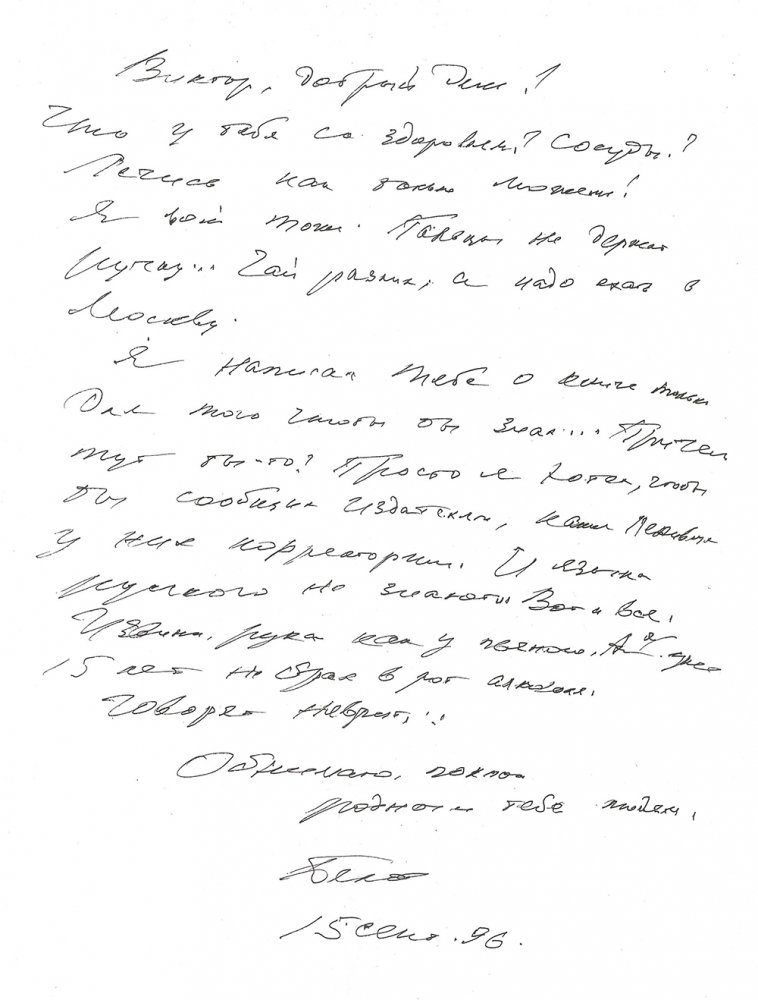 Виктор, добрый день!
Что у тебя со здоровьем? Сосуды?
Лечись как только можешь!
Я вой тоже. Пальцы не держат
ручку... Чай разлив, а надо ехать в
Москву.
Я написал тебе о книге только
для того чтобы ты знал... Причем
тут ты-то? Просто я хотел, чтобы
ты сообщил издателям, какие
у них корректоры. И языка
русского не знают. Вот и все.
Извини, рука как у пьяного. А я уже
15 лет не брал в рот алкоголя.
Говорят неврит...
Обнимаю, поклон
родным тебе людям.
Бело
15 сент. 96.